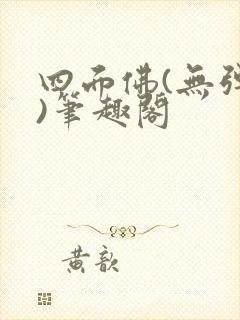 四面佛(無彈
)筆趣閣
黃歆